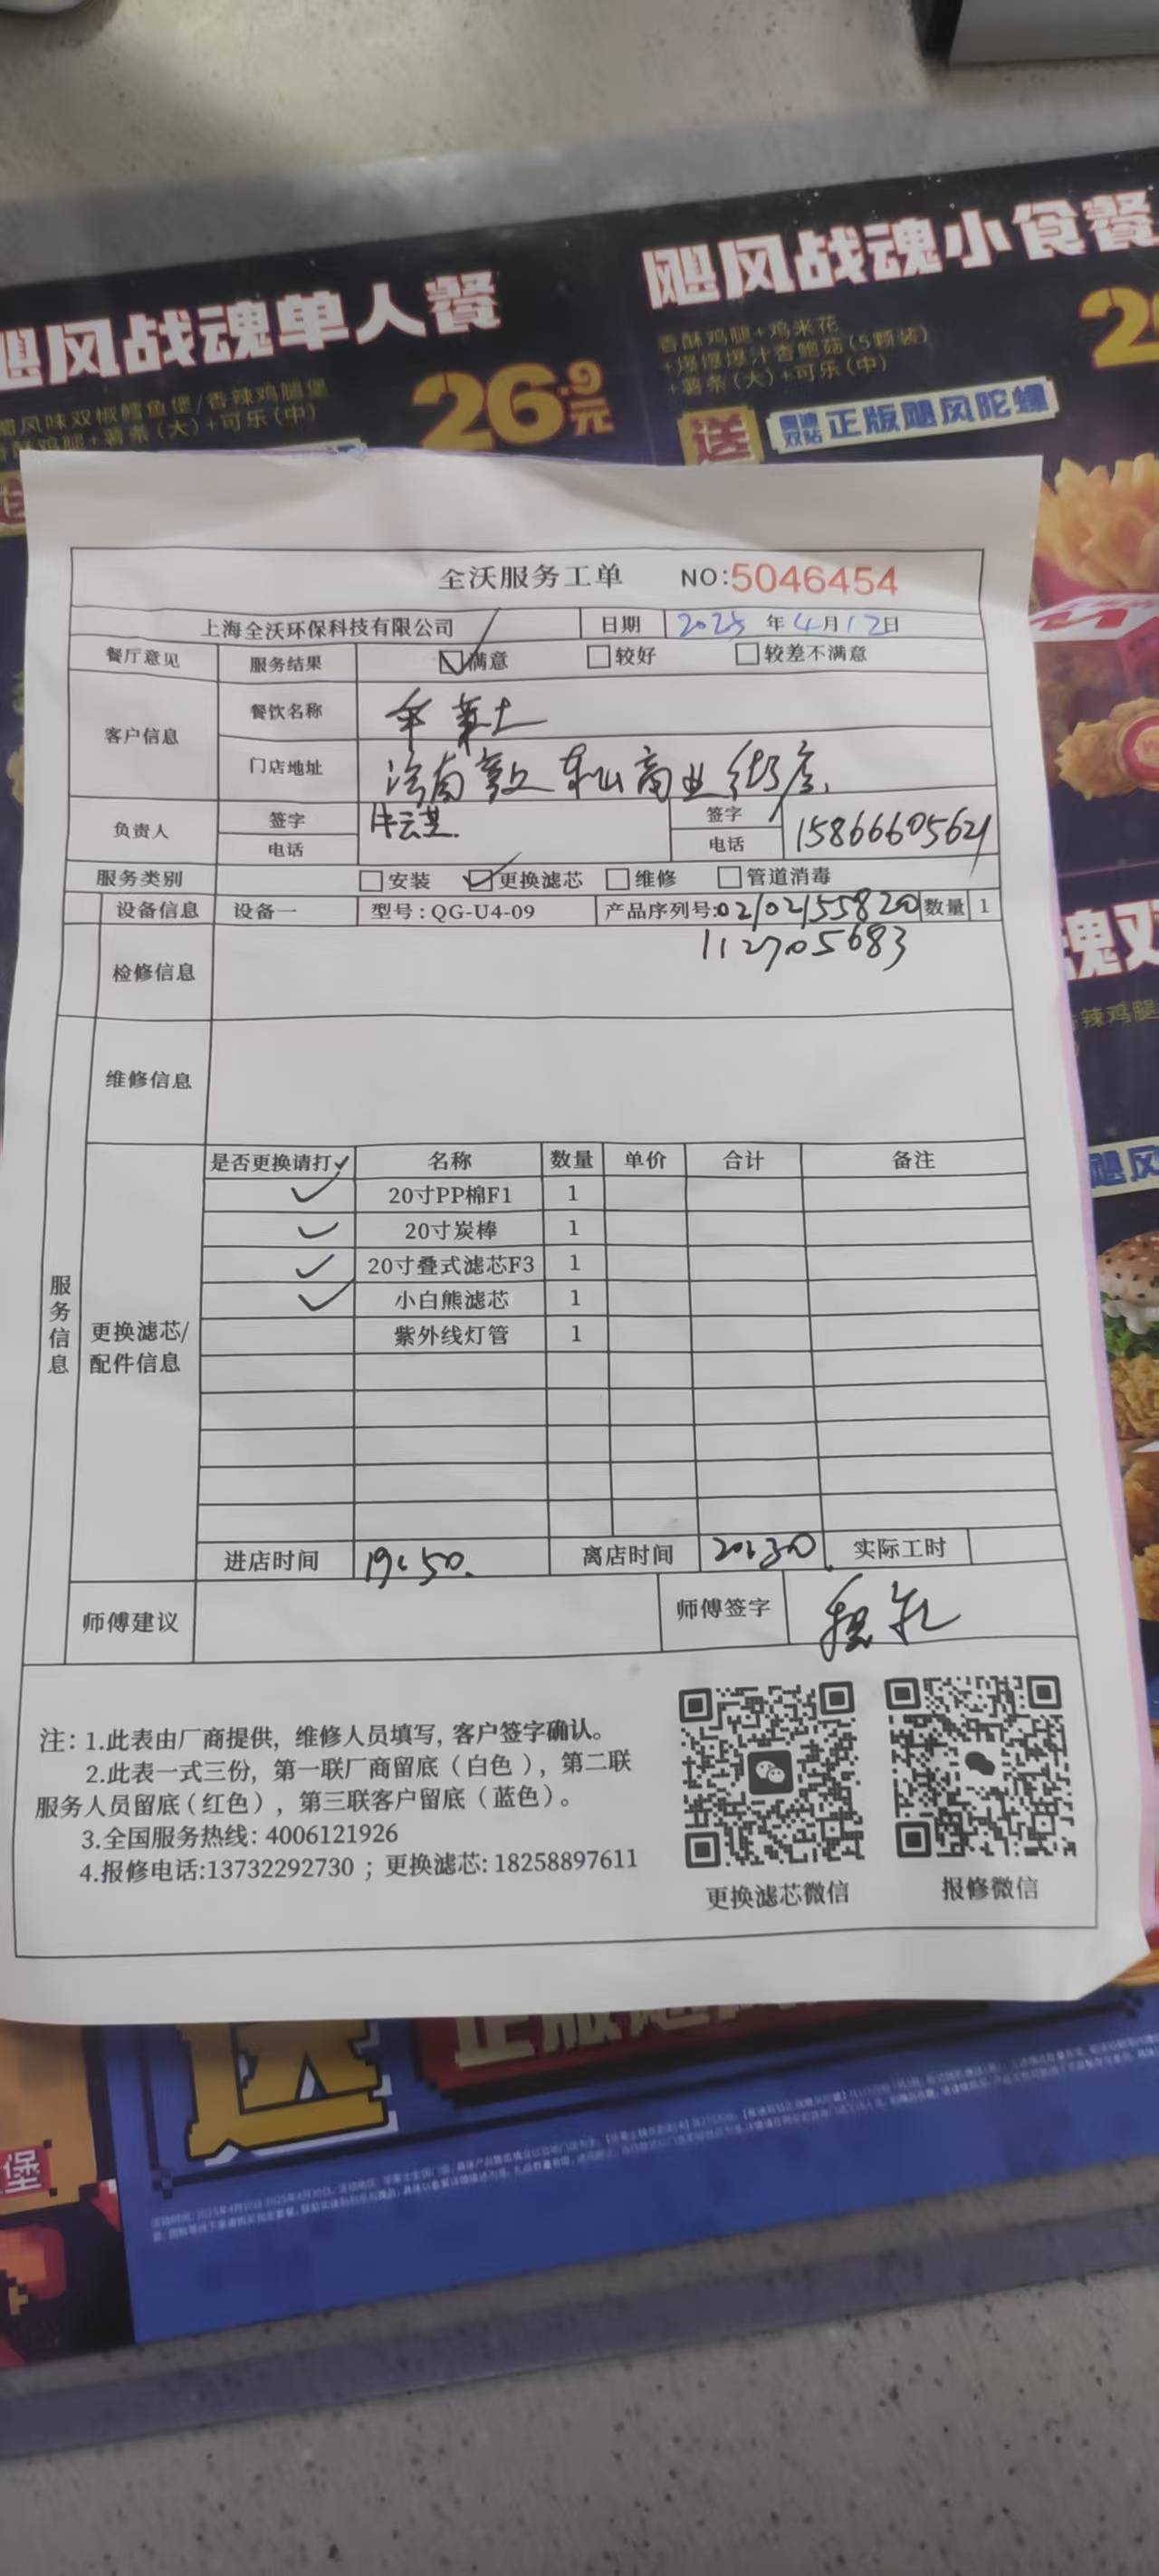 飓风战魂单人餐
飓风战魂小食餐
26.9元
香酥鸡腿+鸡米花
+爆爆爆汁杏鲍菇(5颗装)
+薯条(大)+可乐(中)
风味双椒鳕鱼堡/香辣鸡腿堡
鸡腿+薯条(大)+可乐(中)
送
正版飓风陀螺
全沃服务工单 NO:5046454
上海全沃环保科技有限公司 日期 2025年4月12日
餐厅意见 服务结果 满意 较好 较差不满意
客户信息 餐饮名称 华莱士
门店地址 济南 商业街店
负责人 签字 签字
电话 电话 15866605621
服务类别 安装 更换滤芯 维修 管道消毒
设备信息 设备一 型号:QG-U4-09 产品序列号:02102155820 数量 1
1127705683
检修信息
维修信息
服务信息
更换滤芯/配件信息
是否更换请打✓ 名称 数量 单价 合计 备注
✓ 20寸PP棉F1 1
✓ 20寸炭棒 1
✓ 20寸叠式滤芯F3 1
✓ 小白熊滤芯 1
紫外线灯管 1
进店时间 19:50. 离店时间 20:30 实际工时
师傅建议 师傅签字
注:1.此表由厂商提供,维修人员填写,客户签字确认。
2.此表一式三份,第一联厂商留底(白色),第二联
服务人员留底(红色),第三联客户留底(蓝色)。
3.全国服务热线:4006121926
4.报修电话:13732292730 ; 更换滤芯:18258897611
更换滤芯微信
报修微信
送
堡